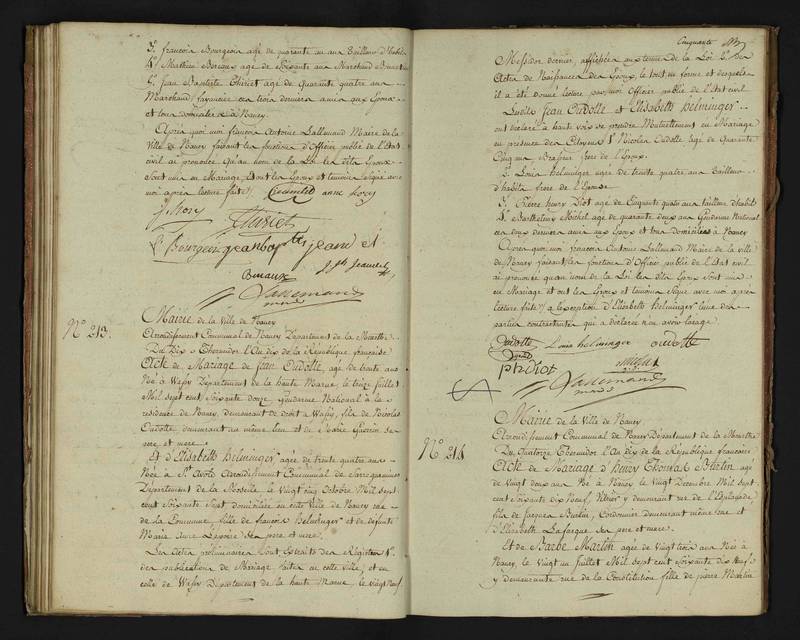 3. françois Bourgoin agé de quarante un ans Tailleur d'habits
4. Mathieu Beriaux agé de Soixante ans Marchand
5. Jean Baptiste Thiriet agé de Quarante quatre ans
Marchand fayancier ces trois derniers amis aux Epoux
et tous domiciliés à Nancy.
Après quoi moi françois Antoine Lallemand Maire de la
Ville de Nancy faisant les fonctions d'Officier public de l'Etat
civil ai prononcé qu'au nom de la Loi les dits Epoux
sont unis en Mariage, et ont les Epoux et temoins signé avec
moi après lecture faite anne Rory
J. Rory
Thiriet
Bourgoin jean bap
Beriaux
Lallemand
maire
N° 213.
Mairie de la Ville de Nancy
Arrondissement Communal de Nancy Département de la Meurthe
Du Dix Thermidor l'An dix de la République française
Acte de Mariage de Jean Oudotte, agé de trente ans
Né à Wassy Département de la haute Marne, le treize Juillet
Mil sept cent soixante douze, Gendarme National à la
residence de Nancy, demeurant de droit à Wassy, fils de Nicolas
Oudotte demeurant au même lieu et de Marie Guerin ses
pere et mere
Et d'Elisabeth Helminger agée de trente quatre ans
Née à St Avold Arrondissement Communal de Sarreguemines
Département de la Moselle, le vingt cinq Octobre Mil sept
cent soixante sept domiciliée en cette Ville de Nancy rue
de la Commune, fille de françois Helminger et de défunte
Marie Anne ses pere et mere.
Les Actes préliminaires sont Extraits des Régistres
des publications de Mariage faites en cette ville, et en
celle de Wassy Département de la haute Marne, le vingt neuf
Cinquante
Messidor dernier, affichées aux termes de la Loi
Actes de Naissances des Epoux, le tout en forme et desquels
il a été donné lecture par moi Officier public de l'Etat civil
Lesdits Jean Oudotte et Elisabeth Helminger
ont declaré à haute voix se prendre Mutuellement en Mariage
en présence des Citoyens 1. Nicolas Oudotte agé de Quarante
Cinq ans frere de l'Epoux.
2. Louis helminger agé de trente quatre ans Tailleur
d'habits frere de l'Epouse
3. Pierre henry Diot agé de Cinquante quatre ans tailleur d'habits
4. Barthelemy Michel agé de quarante deux ans Gendarme National
ces deux derniers amis aux Epoux et tous domiciliés à Nancy
Après quoi moi françois Antoine Lallemand Maire de la ville
de Nancy faisant les fonctions d'Officier public de l'Etat civil
ai prononcé qu'au nom de la Loi les dits Epoux sont unis
en Mariage et ont les Epoux et temoins signé avec moi après
lecture faite à l'exception d'Elisabeth Helminger l'une des
parties contractantes qui a declarée n'en avoir l'usage.
Oudotte Louis helminger oudotte
ph diot michel
Lallemand
maire
N° 214
Mairie de la Ville de Nancy
Arrondissement Communal de Nancy Département de la Meurthe
Du Quatorze Thermidor l'An dix de la République française
Acte de Mariage d'Henry Thomas Burtin agé
de Vingt deux ans Né à Nancy le vingt Decembre Mil sept
cent soixante dix Neuf, y demeurant rue de l'Esplanade
fils de Jacques Burtin, Cordonnier demeurant même rue et
d'Elizabeth Lafarque ses pere et mere.
Et de Barbe Martin agée de Vingt trois ans Née à
Nancy, le Vingt un Juillet Mil sept cent soixante dix Neuf
y demeurante rue de la Constitution fille de pierre Martin